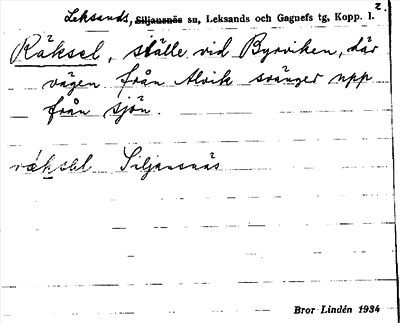 2.
Leksands, Siljansnäs su, Leksands och Gagnefs tg, Kopp. l.
Räksel, ställe vid Byrviken, där
vägen från Alvik svänger upp
från sjön.
räksäl Siljansnäs
Bror Lindén 1934